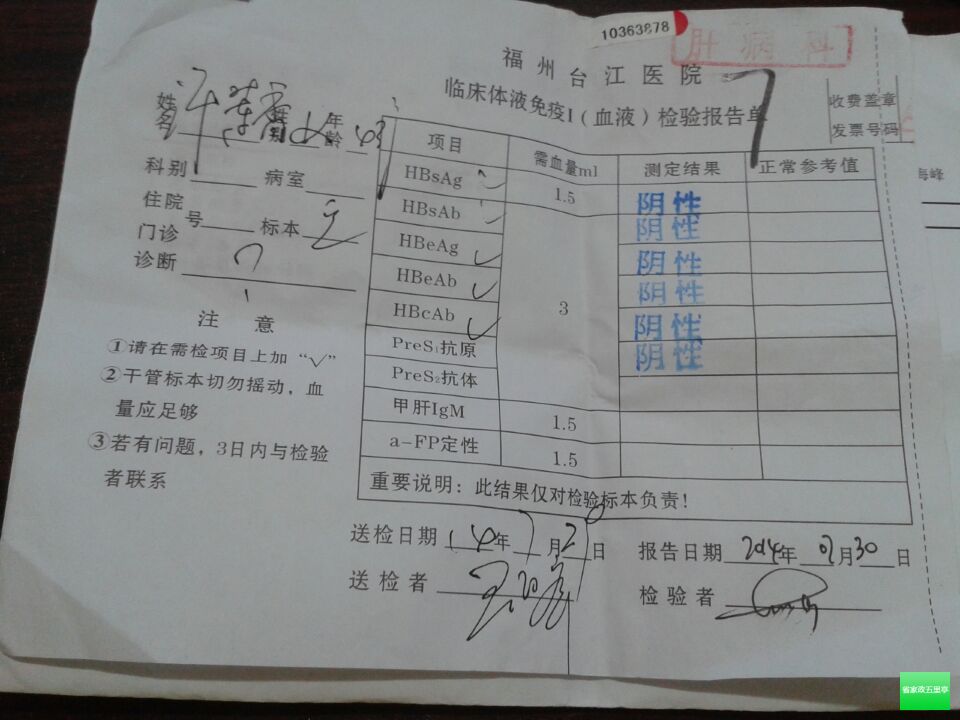 10363878
肝病科
福州台江医院
临床体液免疫I（血液）检验报告单
收费盖章
发票号码
海峰
姓名 性别 女 年龄
科别 病室
住院号 标本
门诊
诊断
注 意
①请在需检项目上加“√”
②干管标本切勿摇动，血
量应足够
③若有问题，3日内与检验
者联系
项目 需血量ml 测定结果 正常参考值
HBsAg √ 1.5 阴性
HBsAb √ 阴性
HBeAg √ 阴性
HBeAb √ 3 阴性
HBcAb √ 阴性
PreS₁抗原 阴性
PreS₂抗体
甲肝IgM 1.5
a-FP定性 1.5
重要说明：此结果仅对检验标本负责！
送检日期 14年7月28日 报告日期 2014年07月30日
送检者 检验者
省家政五里亭